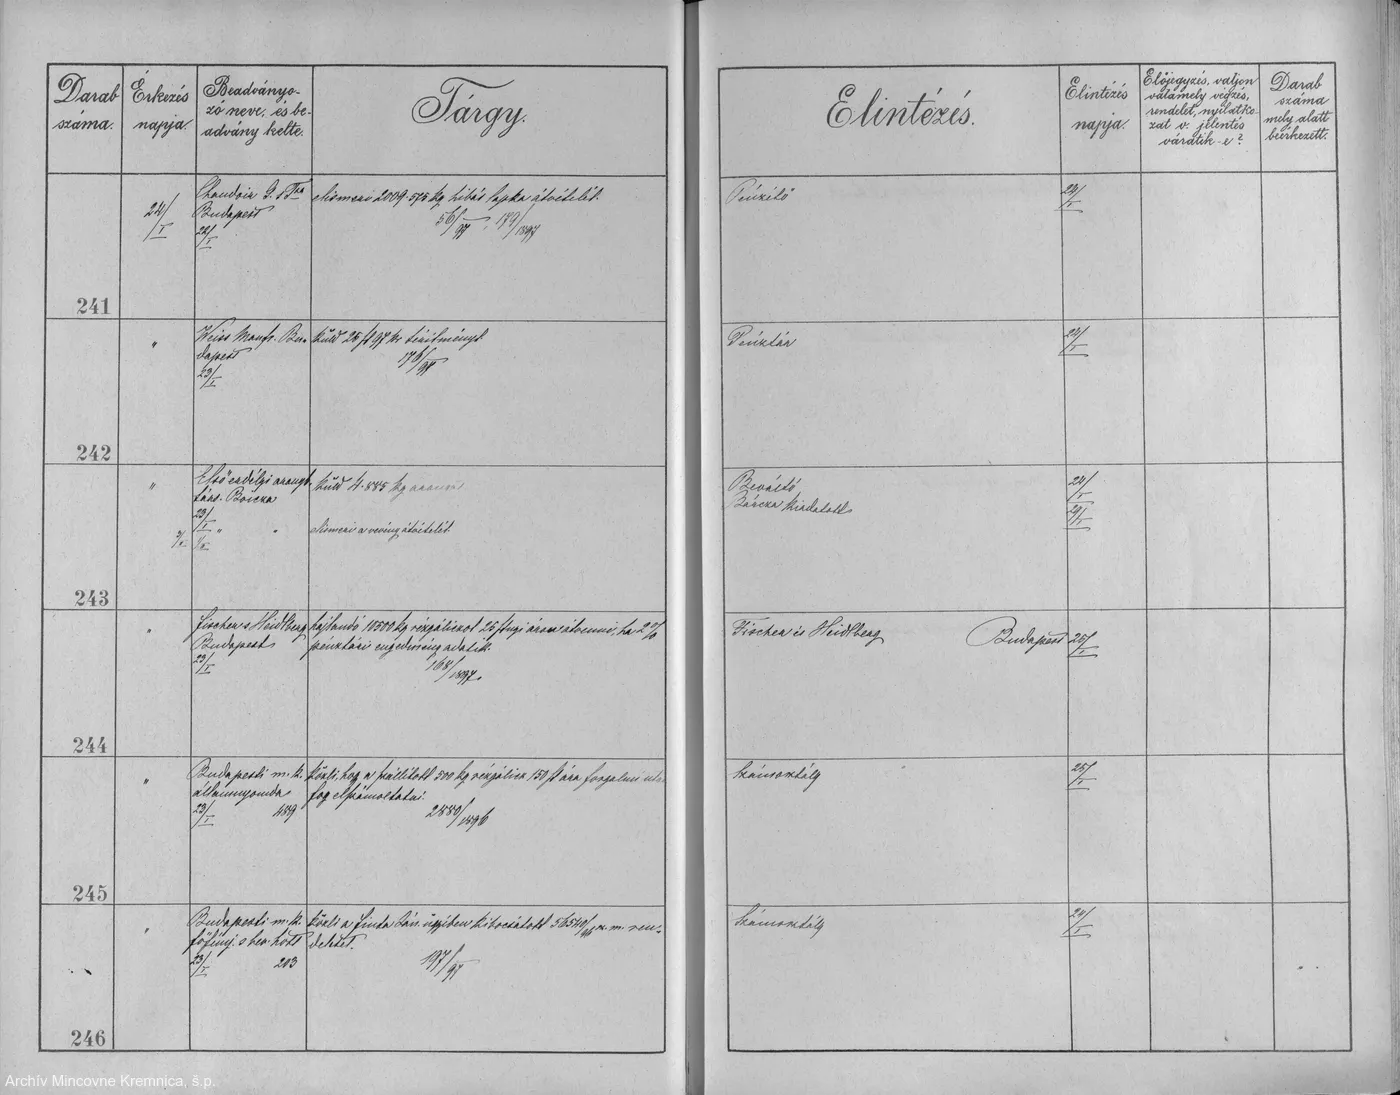 Darab száma.
Érkezés napja.
Beadványo-
zó neve, és be-
advány kelte.
Tárgy.
Elintézés.
Elintézés napja.
Előjegyzés, valjon
valamely végzés,
rendelet, nyilatko-
zat v. jelentés
váratik-e?
Darab
száma
mely alatt
beérkezett.
24/I
Chaudoir G. s
Budapest
22/I
elismeri 2009.575 kg hibás lapka átvételét.
56/97 179/1897
24/I
241
"
Weiss Manfr. Bu-
dapest
23/I
küld 25 ft 97 kr térítményt
176/97
Pénztár
24/I
242
"
Első erdélyi aranyb.
társ. Boicza
23/I
küld 4.885 kg aranyat
" "
elismeri a vevény átvételét.
Beváltó
24/I
Bárcza kiadatott
29/I
243
"
Fischer s Heidlberg
Budapest
23/I
hajlandó 10500 kg rézgáliczot 25 ftnyi áron átvenni, ha 2%
pénztári engedmény adatik.
168/1897.
Fischer és Heidlberg Budapest
25/I
244
"
Budapesti m. k.
államnyomda
23/I 489
közli, hogy a szállított 500 kg rézgálicz 150 ft ára forgalmi
fog elszámoltatni.
2880/1896
Számosztály
25/I
245
"
Budapesti m. k.
főfémj. s bev. hiv.
23/I 203
közli a Finta ügyben kibocsátott p. m. ren-
deletet.
197/97
Számosztály
246
Archív Mincovne Kremnica, š.p.